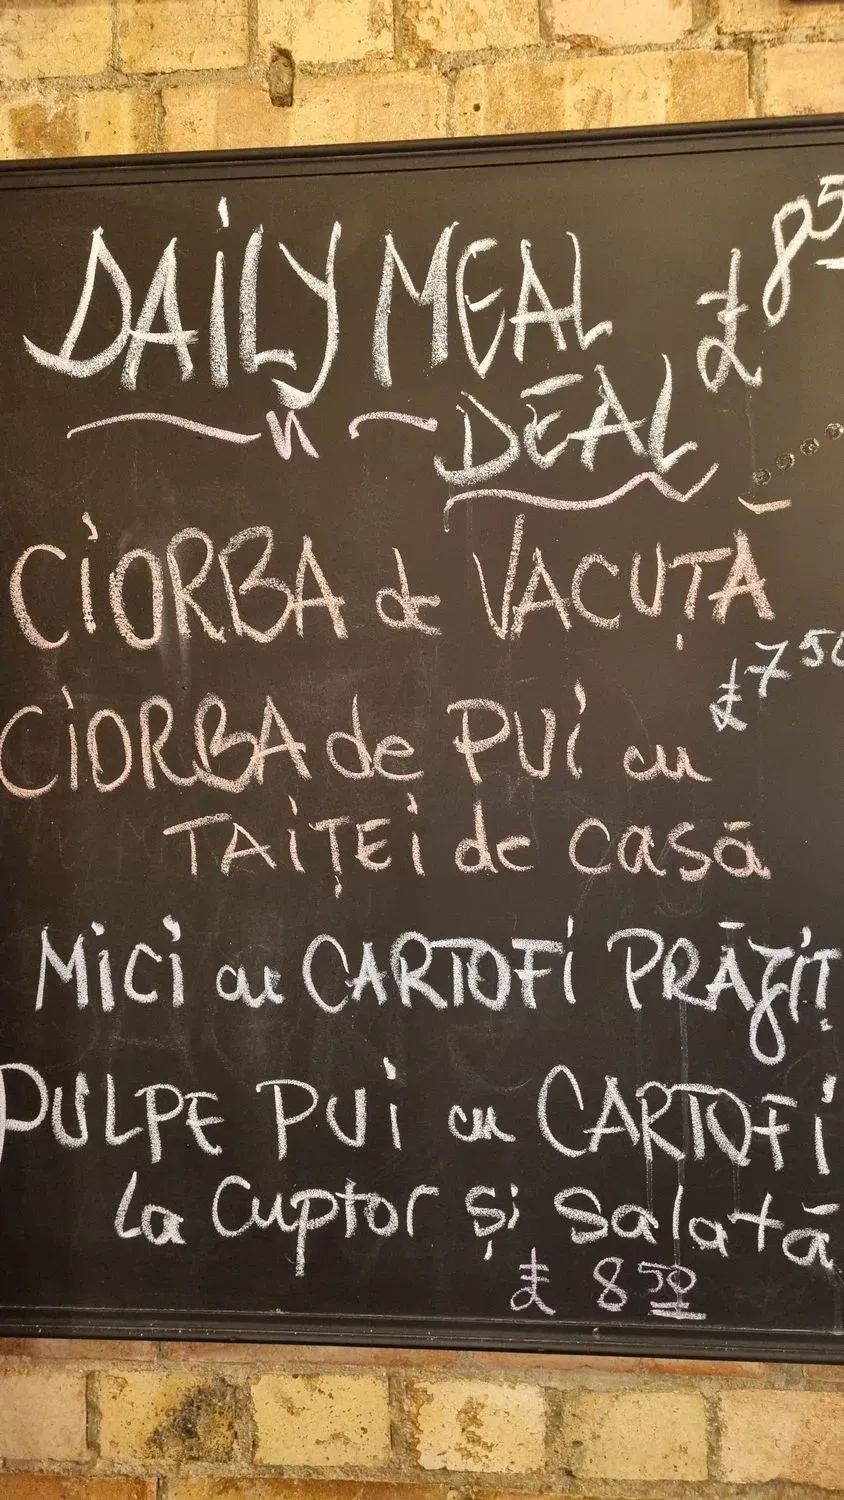 DAiLY MEAL £ 85
DEAL
CiORBA de VACUȚĂ
£7 50
CiORBA de PUi cu
TAiȚEi de casă
MiCi cu CARTOFi PRĂJiȚ
PULPE PUi cu CARTOFi
La Cuptor și Salată
£ 8 50